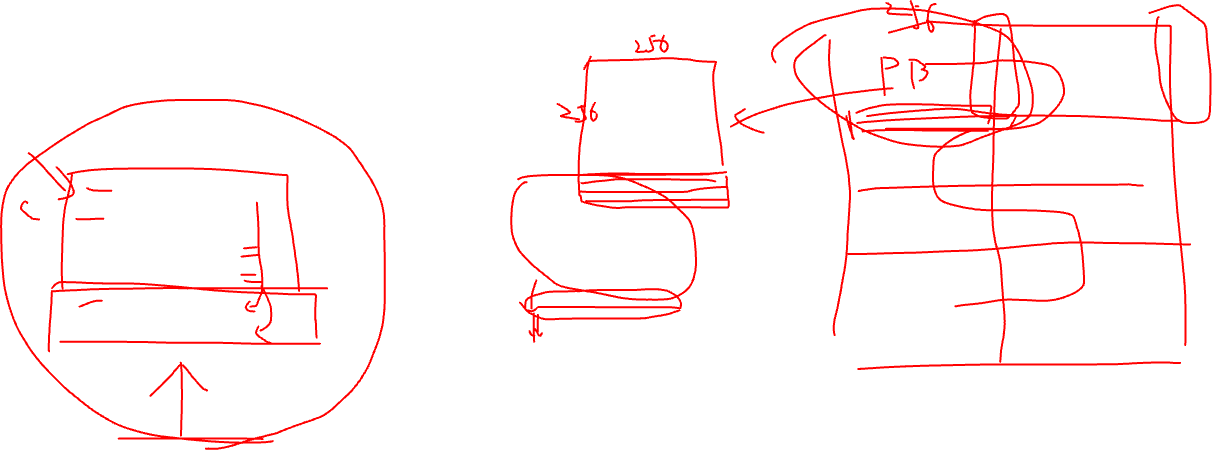 256
256
256
PB